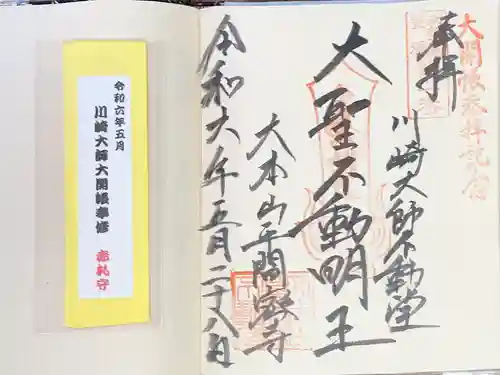 大開帳奉拝記念
奉拝
川崎大師不動堂
大聖不動明王
大本山平間寺
令和六年五月二十八日
令和六年五月
川崎大師大開帳奉修
赤札守